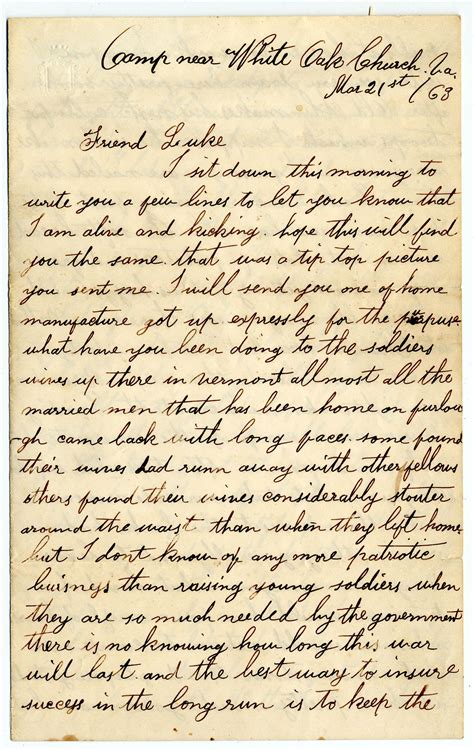 Camp near White Oak Church, Va.
Mar 21st /63
Friend Luke
I sit down this morning to
write you a few lines to let you know that
I am alive and kicking. hope this will find
you the same. that was a tip top picture
you sent me. I will send you one of home
manufacture got up expressly for the purpuse.
what have you been doing to the soldiers
wives up there in vermont allmost all the
married men that has been home on furlow
-gh came back with long faces. some found
their wives had runn away with other fellows
others found their wives considerably stouter
around the waist than when they left home.
but I dont know of any more patriotic
buisness than raising young soldiers when
they are so much needed by the government
there is no knowing how long this war
will last. and the best way to insure
success in the long run is to keep the